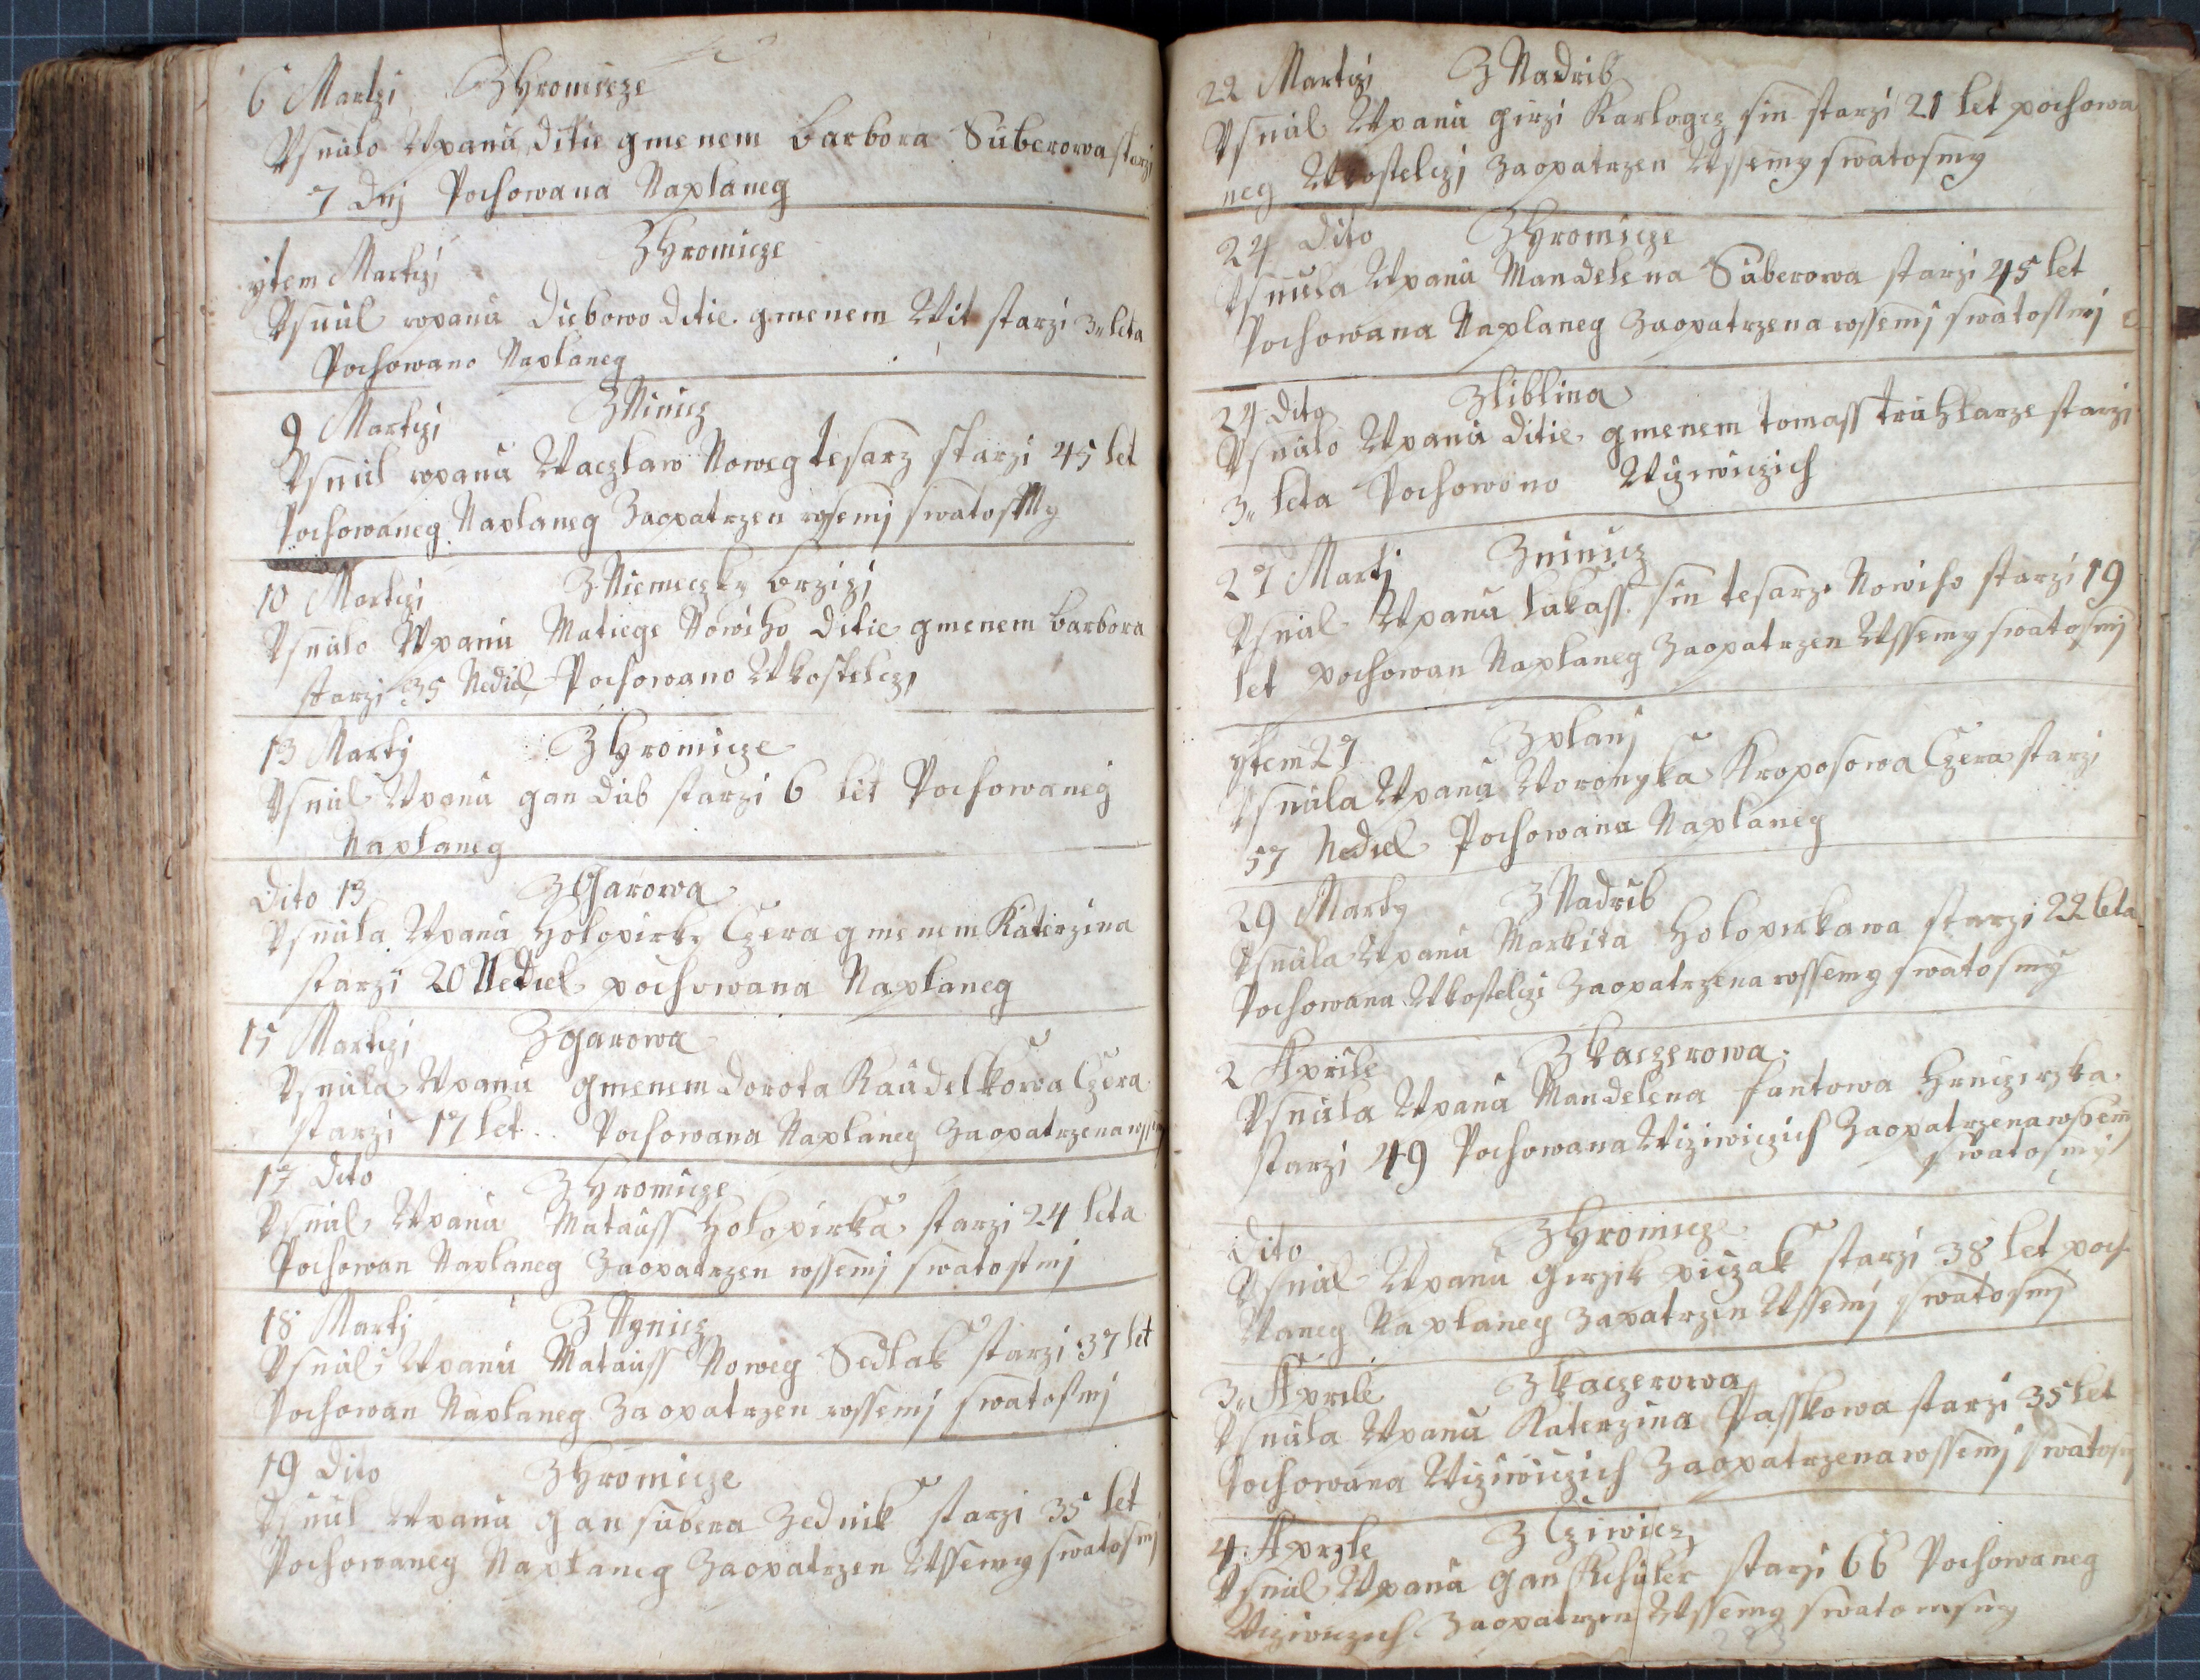 6 Martzi Z Hromicze
Usnulo Wpanu ditie gmenem barbora Suberowa starzi
7 Dnj Pochowana Naplaneg
ytem Martizi Z Hromicze
Usnul wpanu Dubowo ditie gmenem Wit starzi 3 leta
Pochowano Naplaneg
9 Martizi Z Ninicz
Usnul wpanu Waczlaw Noweg tesarz starzi 45 let
Pochowaneg Naplaneg Zaopatrzen wssemj swatostmy
10 Martizi Z Niemeczky brzizi
Usnulo Wpanu Matiege Nowiho ditie gmenem barbora
starzi 35 Nediel Pochowano Wkostelczi
13 Martj Z Hromicze
Usnul Wpanu gan dub starzi 6 let Pochowaneg
Naplaneg
Dito 13 Z Garowa
Usnula Wpanu Holopirky Czera gmenem Katerzina
starzi 20 Nediel pochowana Naplaneg
15 Martizi Z garowa
Usnula Wpanu gmenem dorota Kaudelkowa Czera
starzi 17 let Pochowana Naplaneg Zaopatrzena
17 Dito Z Hromicze
Usnul Wpanu Matauss Holopirka starzi 24 leta
Pochowan Naplaneg Zaopatrzen wssemj swatostmj
18 Martj Z Nynicz
Usnul Wpanu Matauss Noweg Sedlak starzi 37 let
Pochowan Naplaneg Zaopatrzen wssemj swatosmj
19 Dito Z Hromicze
Usnul Wpanu gan subera Zednik starzi 35 let
Pochowaneg Naplaneg Zaopatrzen Wssemy swatosmj
22 Martizi Z Nadrib
Usnul Wpanu girzi Karlogez sin starzi 21 let pochowa
neg Wkostelczj Zaopatrzen Wssemy swatosmy
24 Dito Z Hromicze
Usnula Wpanu Mandelena Suberowa starzi 45 let
Pochowana Naplaneg Zaopatrzena wssemj swatostmj
24 Dito Z liblina
Usnulo Wpanu ditie gmenem tomass truhlarze starzi
3 leta Pochowono
27 Martj Z ninicz
Usnul Wpanu lukass sin tesarze Nowiho starzi 19
let pochowan Naplaneg Zaopatrzen Wssemy swatosmj
ytem 27 Z planj
Usnula Wpanu Woronyka Kroposowa Czera starzi
57 Nediel Pochowana Naplaneg
29 Marty Z Nadrib
Usnula Wpanu Markita Holopirkawa starzi 22 leta
Pochowana Wkostelczi Zaopatrzena wssemy swatosmy
2 Aprile Z kaczerowa
Usnula Wpanu Mandelena fantowa Hrnczirzka
starzi 49 Pochowana Wiziwiczich Zaopatrzena wssem
swatosmy
Dito Z Hromicze
Usnul Wpanu girzik piczak starzi 38 let poch
Waneg Naplaneg Zapatrzen Wssemj swatosmj
3 Aprile Z kaczerowa
Usnula Wpanu Katerzina Passkowa starzi 35 let
Pochowana Wiziwiczich Zaopatrzena wssemj swatosm
4 Aprzle Z Cziwicz
Usnul Wpanu gan starzi 66 Pochowaneg
Wiziwiczich Zaopatrzen Wssemy